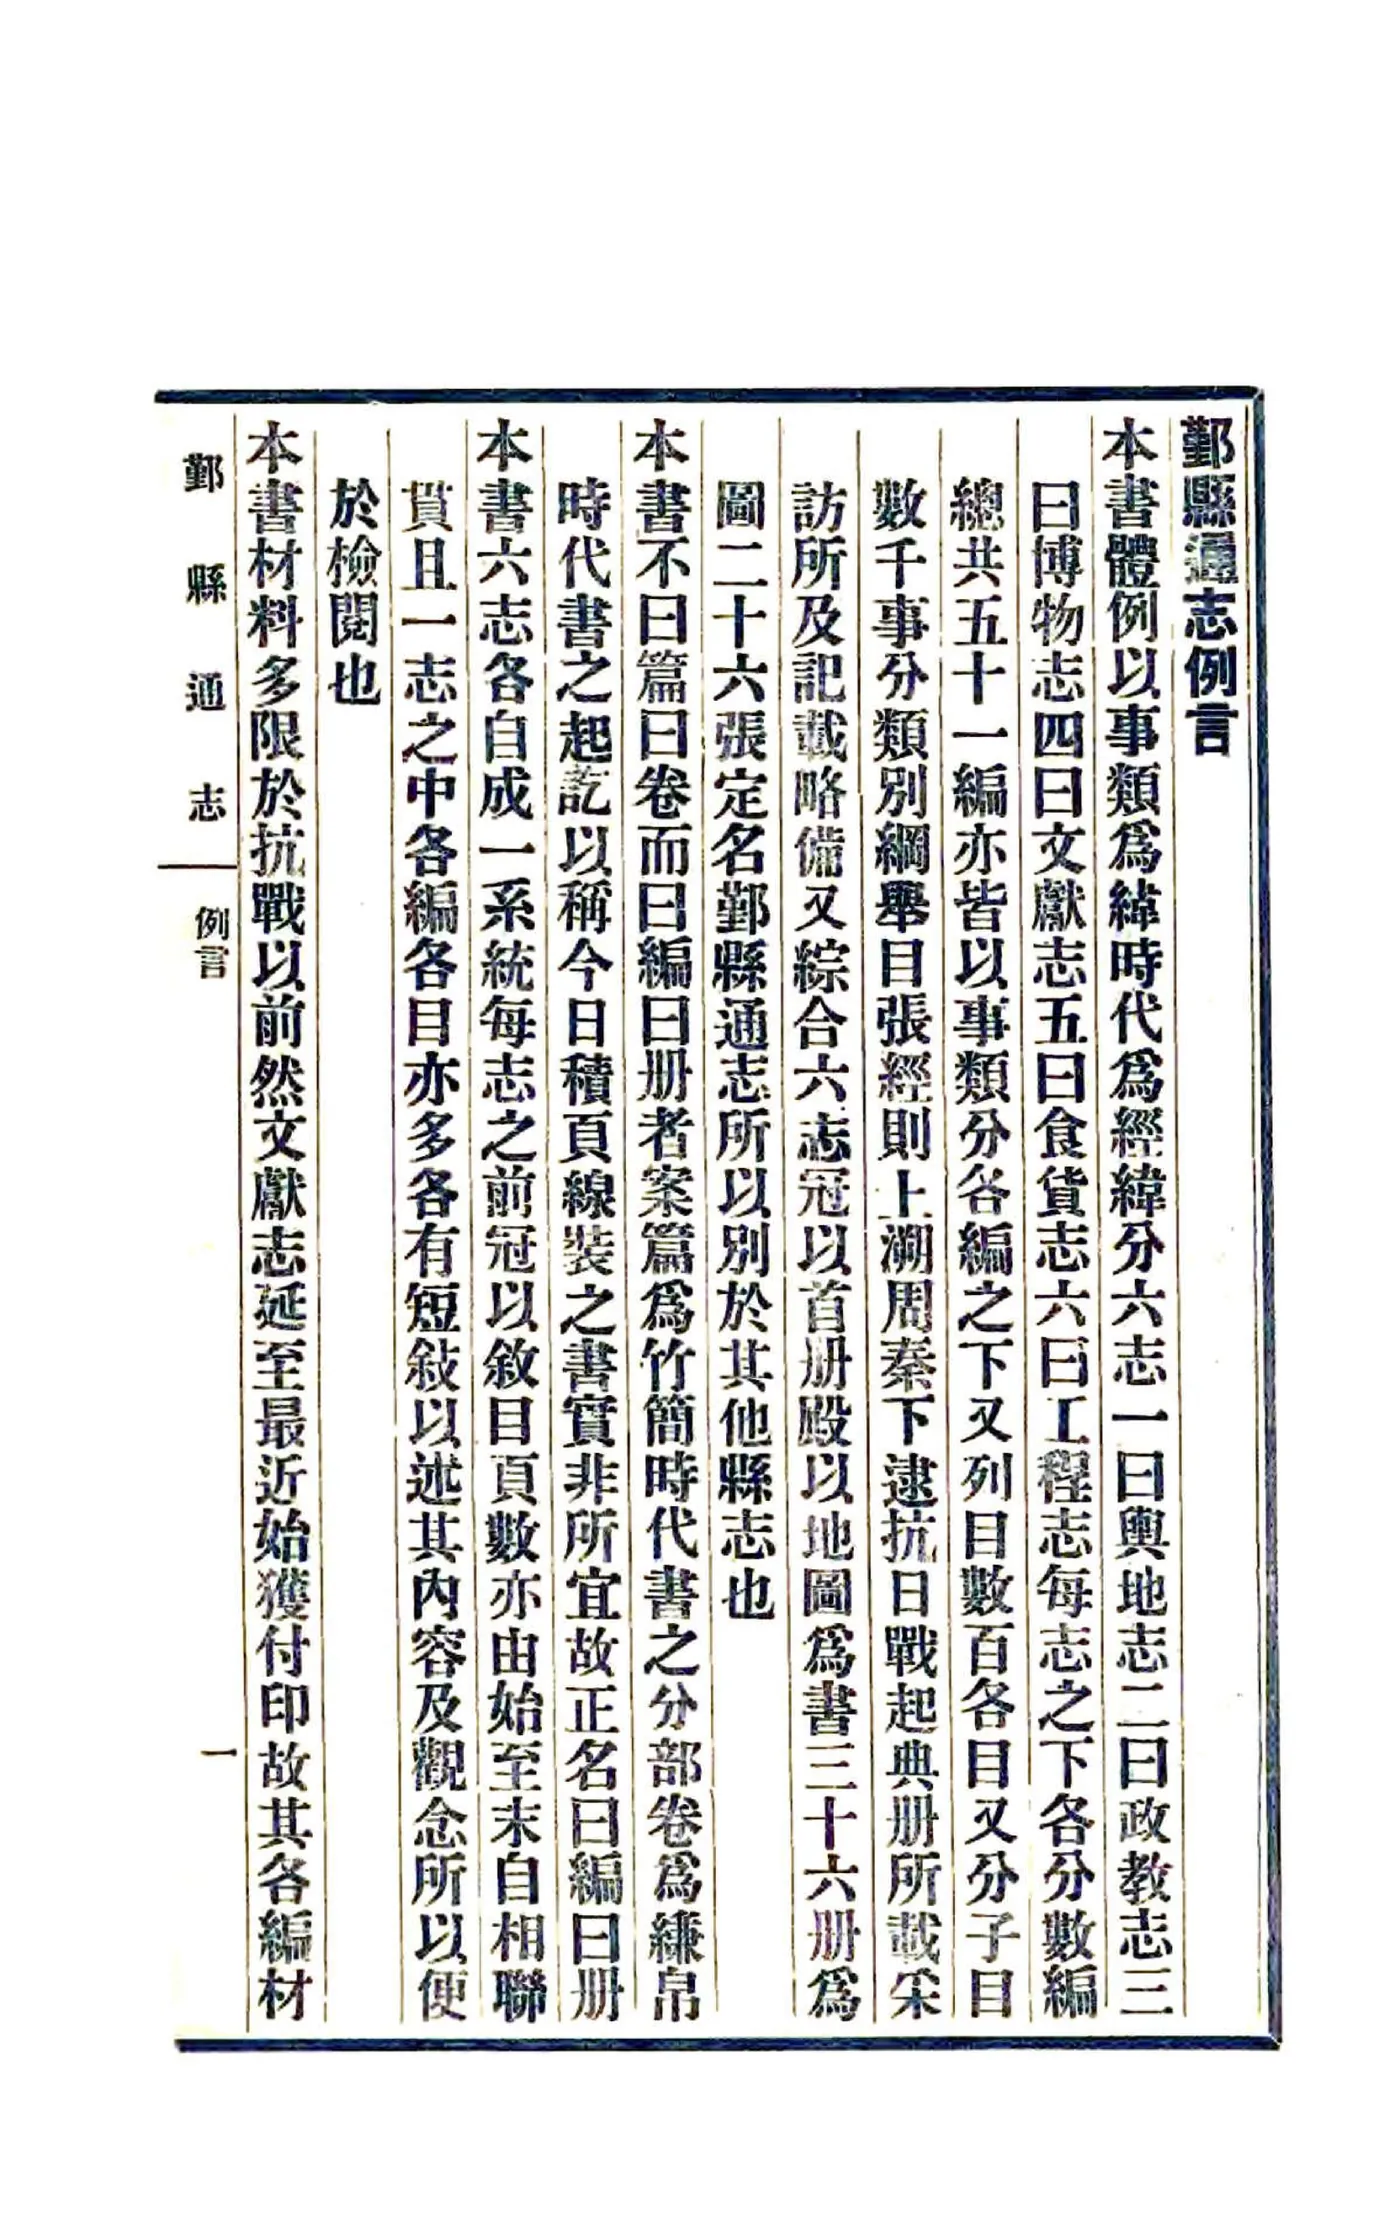 鄞縣通志例言
本書體例以事類爲緯時代爲經緯分六志一曰輿地志二曰政教志三
曰博物志四曰文獻志五曰食貨志六曰工程志每志之下各分數編
總共五十一編亦皆以事類分各編之下又列目數百各目又分子目
數千事分類別綱舉目張經則上溯周秦下逮抗日戰起典册所載采
訪所及記載略備又綜合六志冠以首册殿以地圖爲書三十六册爲
圖二十六張定名鄞縣通志所以別於其他縣志也
本書不曰篇曰卷而曰編曰册者案篇爲竹簡時代書之分部卷爲縑帛
時代書之起訖以稱今日積頁線裝之書實非所宜故正名曰編曰册
本書六志各自成一系統每志之前冠以敘目頁數亦由始至末自相聯
貫且一志之中各編各目亦多各有短敍以述其內容及觀念所以便
於檢閱也
本書材料多限於抗戰以前然文獻志延至最近始獲付印故其各編材
鄞縣通志 例言 一